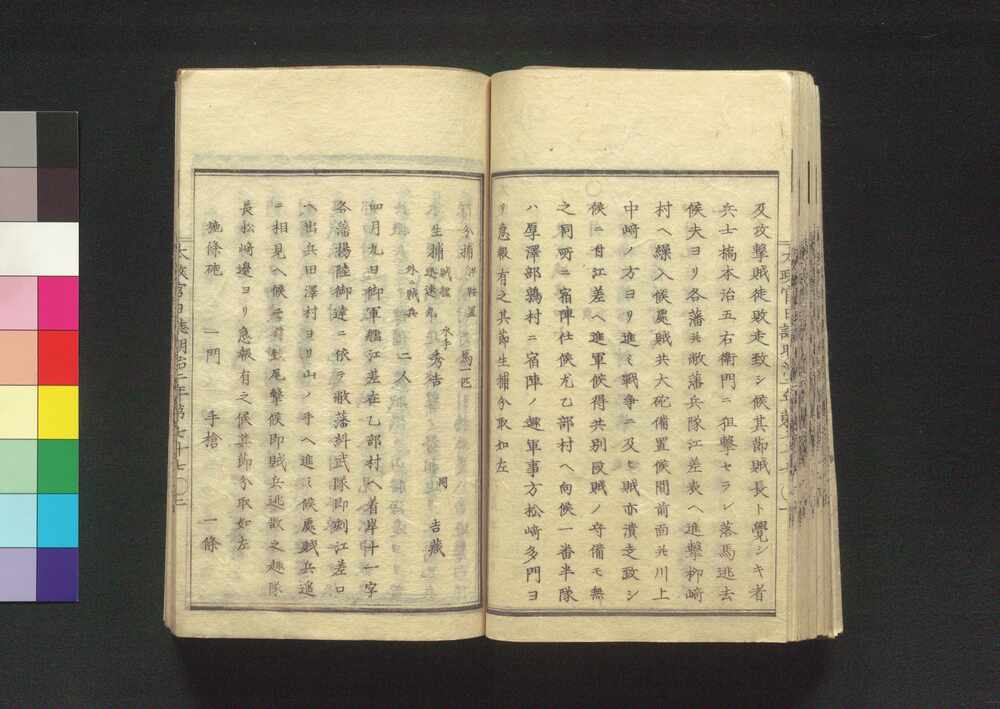 及攻撃賊徒敗走致シ候其節賊長ト覺シキ者
兵士橋本治五右衛門ニ狙撃セラレ落馬逃去
候夫ヨリ各藩共敝藩兵隊江差表ヘ進撃柳﨑
村ヘ繰入候處賊共大砲備置候間前面共川上
中﨑ノ方ヨリ進ミ戰争ニ及ヒ賊亦潰走致シ
候ニ付江差ヘ進軍候得共別段賊ノ守備モ無
之同所ニ宿陣仕候尤乙部村ヘ向候一番半隊
ハ厚澤部鶉村ニ宿陣ノ趣軍事方松﨑多門ヨ
リ急報有之其節生捕分取如左
生捕 賊艦 水手 秀吉 同 吉藏
外ニ賊兵 二人
分捕 馬一匹
四月九日御軍艦江差在乙部村ヘ着岸十一字
各藩揚陸御達ニ依テ敝藩糾武隊即刻江差口
ヘ出兵田澤村ヨリ山ノ手ヘ進ミ候處賊兵遥
ニ相見ヘ候ニ付尾撃候即賊兵逃散之趣隊
長松﨑邊ヨリ急報有之候其節分取如左
施條砲 一門 手槍 一條
太政官日誌明治二年第七十七〇二